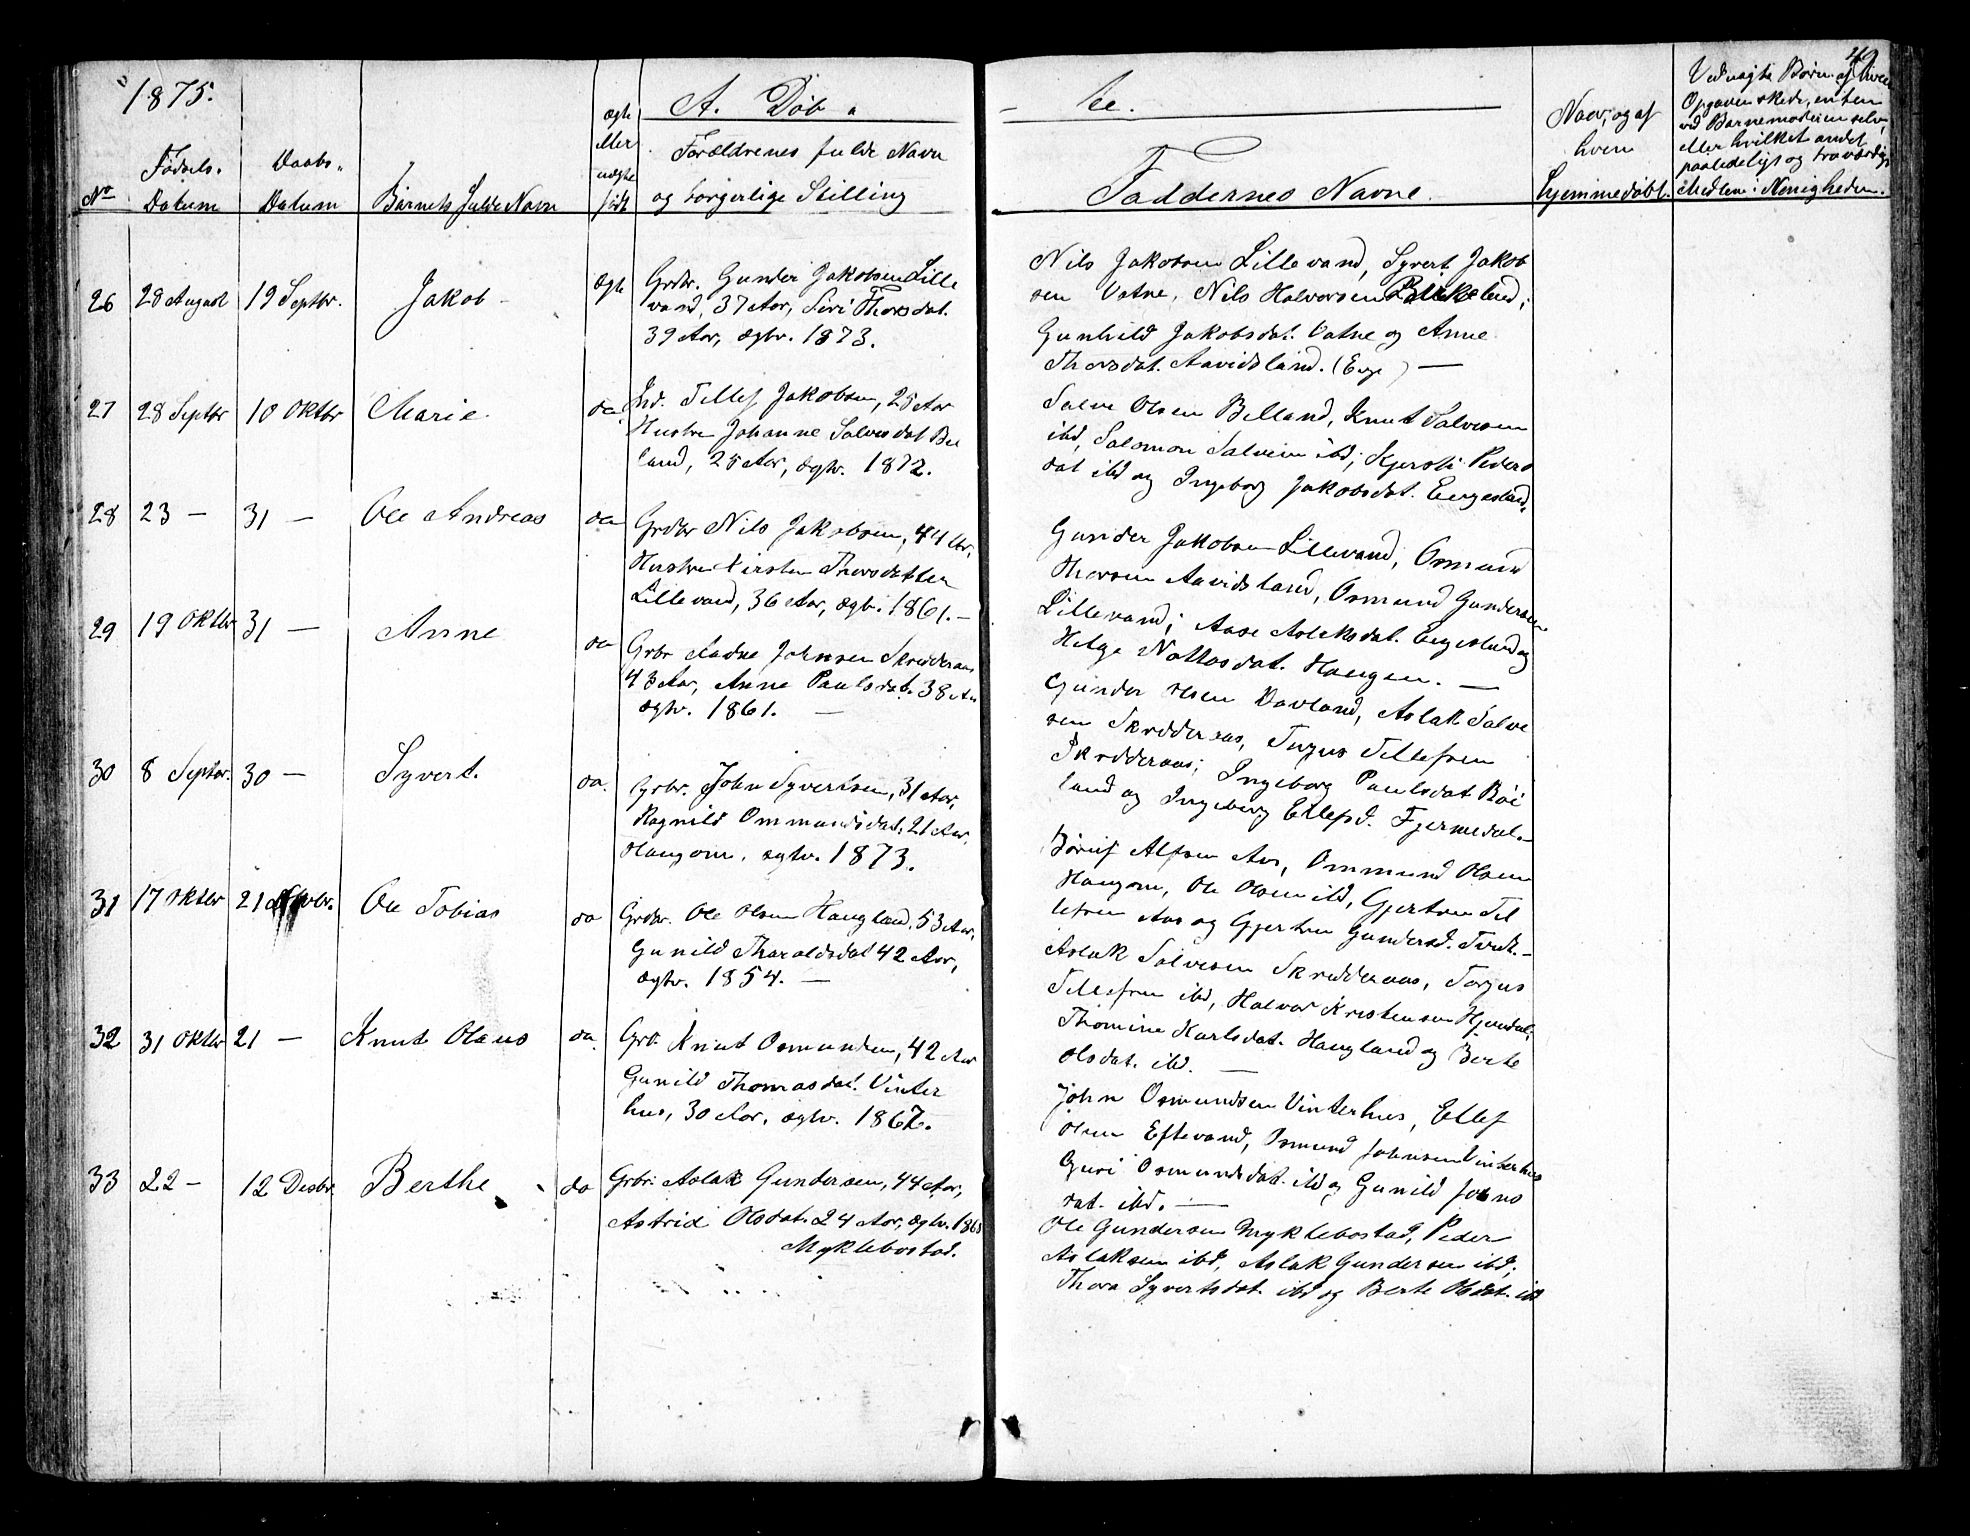 1875.
A. Døb
te.
No
Fødsels-
Datum
Daabs-
Datum
Barnets fulde Navn
ægte
eller
uægte
født
Forældrenes fulde Navn
og borgerlige Stilling
Faddernes Navne.
Naar, og af
hvem
hjemmedøbt.
Ved uægte Børn, af hvem
Opgaven skede, enten
ved Barnemoderen selv,
eller hvilket andet
paalideligt og troværdigt
Medlem i Menigheden.
26 28 August 19 Septbr. Jakob - ægte
Grdbr. Gunder Jakobsen Lille
vand, 37 Aar, Siri Thorsdat.
39 Aar, ægtv. 1873.
Nils Jakobsen Lillevand, Syvert Jakob
sen Vatne, Nils Halvorsen Birkeland;
Gunhild Jakobsdat. Vatne og Anne
Thorsdat. Aavidsland. (Enge) —
27 28 Septbr 10 Oktbr Marie. do
Ind. Tellef Jakobsen, 25 Aar
Hustru Johanne Salvesdat Bel
land, 25 Aar, ægtv. 1872.
Salve Olsen Belland, Knut Salvesen
ibd, Salomon Salvesen ibd; Kjersti Peders
dat ibd og Ingeborg Jakobsdat. Engesland.
28 23 — 31 — Ole Andreas do
Grdbr Nils Jakobsen, 44 Aar,
Hustru Kirsten Thorsdatter
Lillevand, 36 Aar, ægtv. 1861. -
Gunder Jakobsen Lillevand, Osmund
Thorsen Aavidsland, Osmund Gundersen
Lillevand; Aase Aslaksdat. Engesland og
Helge Nottosdat. Haugen. —
29 19 Oktbr 31 — Anne do
Grbr Aadne Johnsen Skredderaas
43 Aar, Anne Paulsdat. 38 Aar
ægtv. 1861. —
Gunder Olsen Davland, Aslak Salve
sen Skredderaas, Torjus Tellefsen
Skredderaas; Ingeborg Paulsdat Bøi
land og Ingeborg Ellefsd. Fjermedal.-
30 8 Septbr. 30 — Syvert. do.
Grbr. John Syvertsen, 31 Aar,
Ragnild Ommundsdat. 21 Aar,
Haugom. ægtv. 1873.
Alfsen Aas, Ommund Olsen
Haugom, Ole Olsen ibd, Gjertru Tel
lefsen Aas og Gjertru Gundersd.
31 17 Oktbr 21 Novbr. Ole Tobias do
Grdbr. Ole Olsen Haugland, 53 Aar,
Gunild Tharaldsdat 42 Aar,
ægtv. 1854. —
Aslak Salvesen Skredderaas, Torjus
Tellefsen ibd, Halvor Kristensen
Thomine Karlsdat. Haugland og Berte
Olsdat. ibd. —
32 31 Oktbr 21 — Knut Olaus do.
Grb. Knut Osmundsen, 42 Aar
Gunild Thomasdat. Vinter
hus, 30 Aar, ægtv. 1867.
John Osmundsen Vinterhus, Ellef
Olsen Eftevand, Osmund Johnsen Vinterhus
Guri Osmundsdat. ibd og Gunild Johns
dat. ibd. —
33 22 — 12 Desbr. Berthe do
Grbr: Aslak Gundersen, 44 Aar,
Astrid Olsdat. 24 Aar, ægtv. 1868
Myklebostad.
Ole Gundersen Myklebostad, Peder
Aslaksen ibd, Aslak Gundersen ibd;
Thora Syvertsdat. ibd og Berte Olsdat. ibd